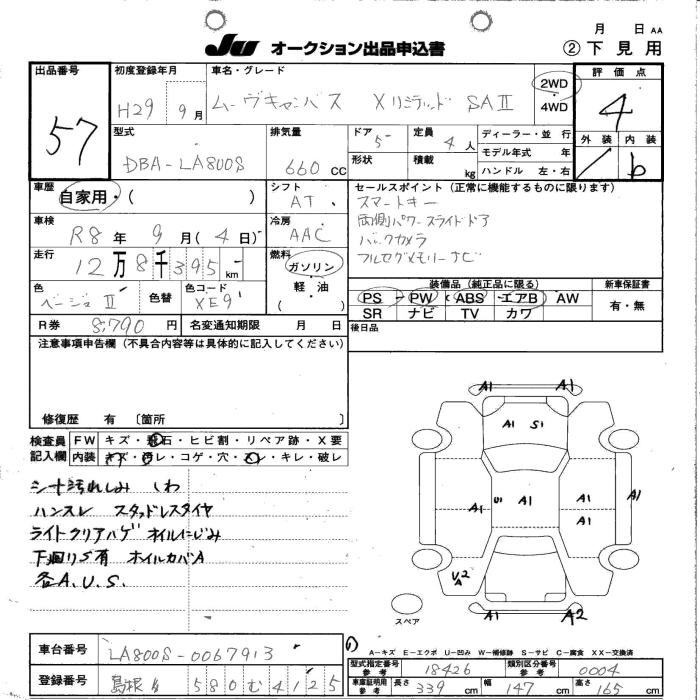 月 日 AA
JU オークション出品申込書 ② 下見用
出品番号 初度登録年月 車名・グレード 2WD 評価点
57 H29 9月 ムーヴキャンバス Xリミテッド SAⅡ 4WD 4
型式 排気量 ドア 5 定員 4人 ディーラー・並 行 外装 内装
DBA-LA800S 660 CC 形状 積載 kg モデル年式 年 b
ハンドル 左・右
車歴 自家用・( ) シフト AT セールスポイント(正常に機能するものに限ります)
スマートキー
車検 R8年 9月(4日) 冷房 AAC 両側パワースライドドア
バックカメラ
走行 12万8千395km 燃料 ガソリン フルセグメモリーナビ
色 ベージュⅡ 色替 色コード XE9 軽油 ( ) 装備品(純正品に限る) 新車保証書
PS PW ABS エアB AW 有・無
R券 8,790円 名変通知期限 月 日 SR ナビ TV カワ
注意事項申告欄(不具合内容等は具体的に記入してください) 後日品
修復歴 有 〔箇所 〕
検査員記入欄 FW キズ・飛石・ヒビ割・リペア跡・X要
内装 キズ・汚レ・コゲ・穴・スレ・キレ・破レ
シート汚れしみ しわ
ハンスレ スタッドレスタイヤ
ライトクリアハゲ オイルにじみ
下廻りS有 ホイルカバA
各A.U.S.
A1 A1
A1 S1
A1 U1 A1 A1 A1
A1
U2
A
A1 A2
スペア
車台番号 LA800S-0067913
登録番号 島根 580 む 4125
A-キズ E-エクボ U-凹み W-補修跡 S-サビ C-腐食 XX-交換済
型式指定番号 参考 18426 類別区分番号 参考 0004
車庫証明用 参考 長さ 339 cm 幅 147 cm 高さ 165 cm